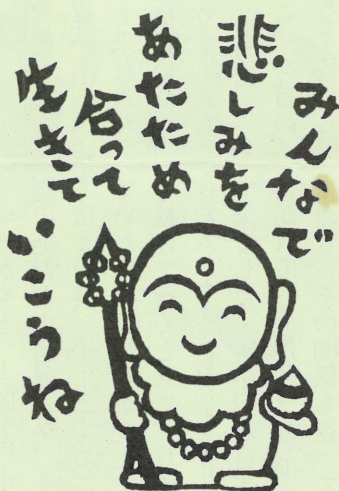 みんなで
悲しみを
あたため
合って
生きて
いこうね